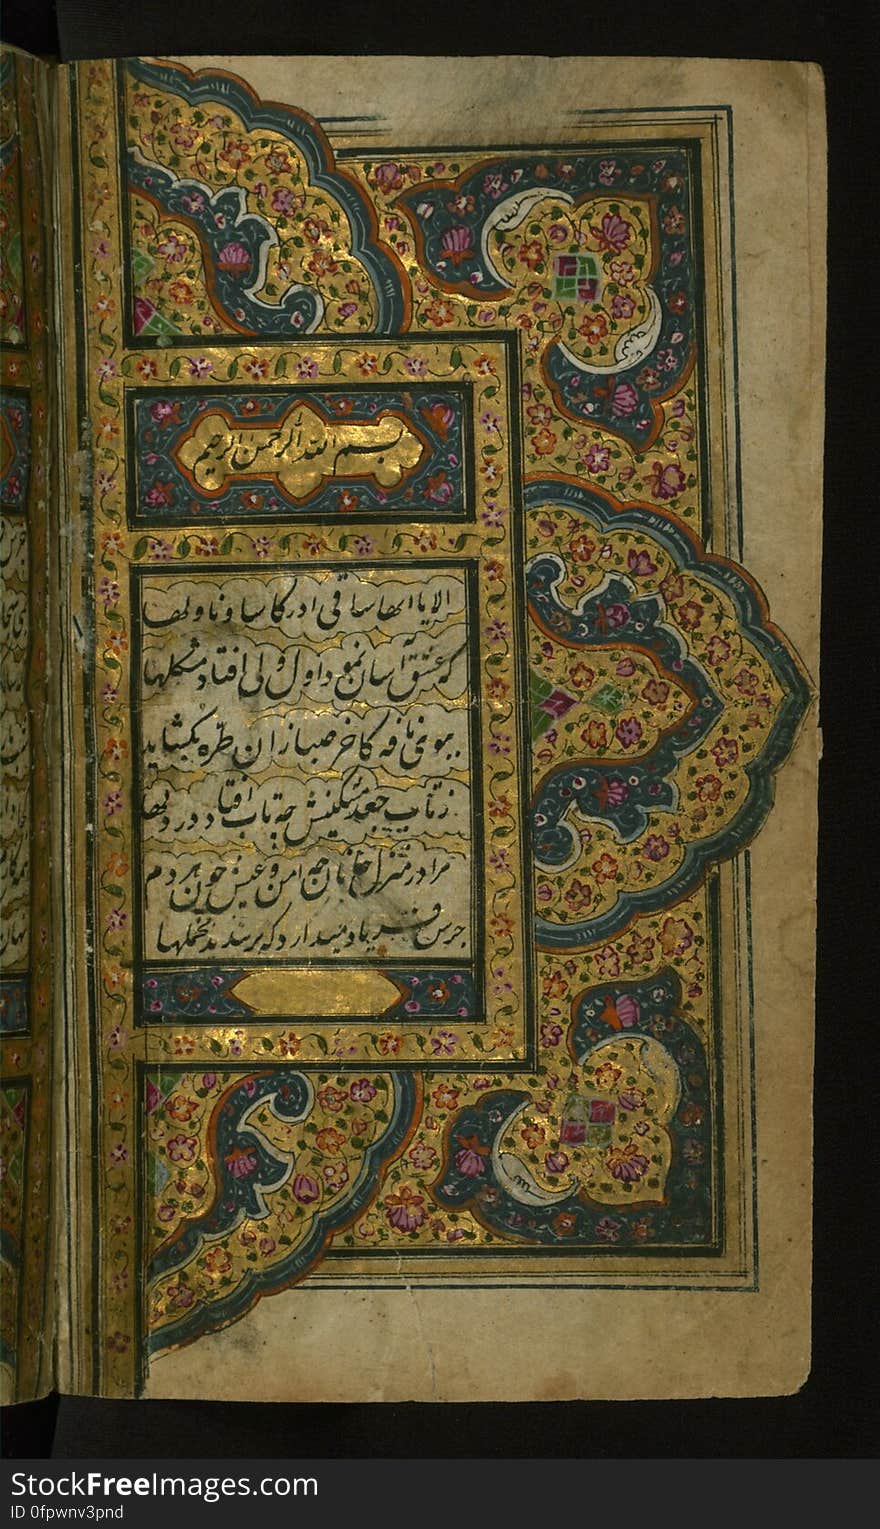 بسم الله الرحمن الرحیم
الا یا ایها الساقی ادر کاسا و ناولها
که عشق آسان نمود اول ولی افتاد مشکلها
ببوی نافه کاخر صبا زان طره بگشاید
ز تاب جعد مشکینش چه تاب افتاد در دلها
مرا در منزل جانان چه امن و عیش چون هر دم
جرس فریاد میدارد که بربندید محملها
StockFreeImages.com
ID 0fpwnv3pnd